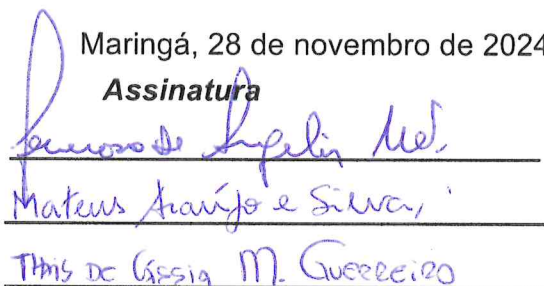 Maringá, 28 de novembro de 2024
Assinatura
Generoso de Angelis
Mateus Araújo e Silva,
THAIS DE CÁSSIA M. GUERREIRO